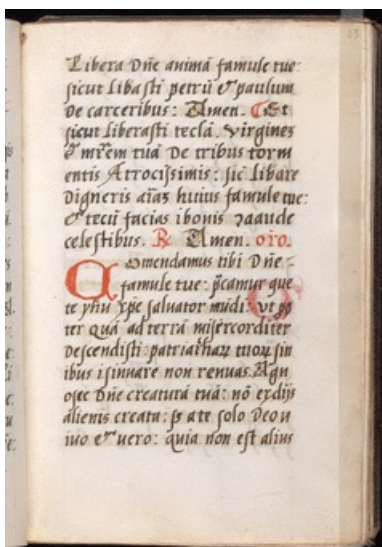 Libera Dñe animã famule tue:
sicut libasti petrũ et paulum
De carceribus: Amen. Et
sicut liberasti teclã. virgines
& mr̃em tuã De tribus torm
entis Atrocissimis: sic libare
Digneris aĩas huius famule tue:
& tecũ facias ibonis gaaude
celestibus. R Amen. oro.
Comendamus tibi Dñe
famule tue: p̃camur que
te yhu xp̃e salvator mũdi: vt pp
ter quã ad terrã misericorditer
Descendisti: patriarhaꝝ tuoꝝ sin
ibus isinuare non renuas. Agn
osce Dñe creaturã tuã: nõ exdijs
alienis creata: sꝫ a te solo Deo v
iuo & vero: quia non est alius